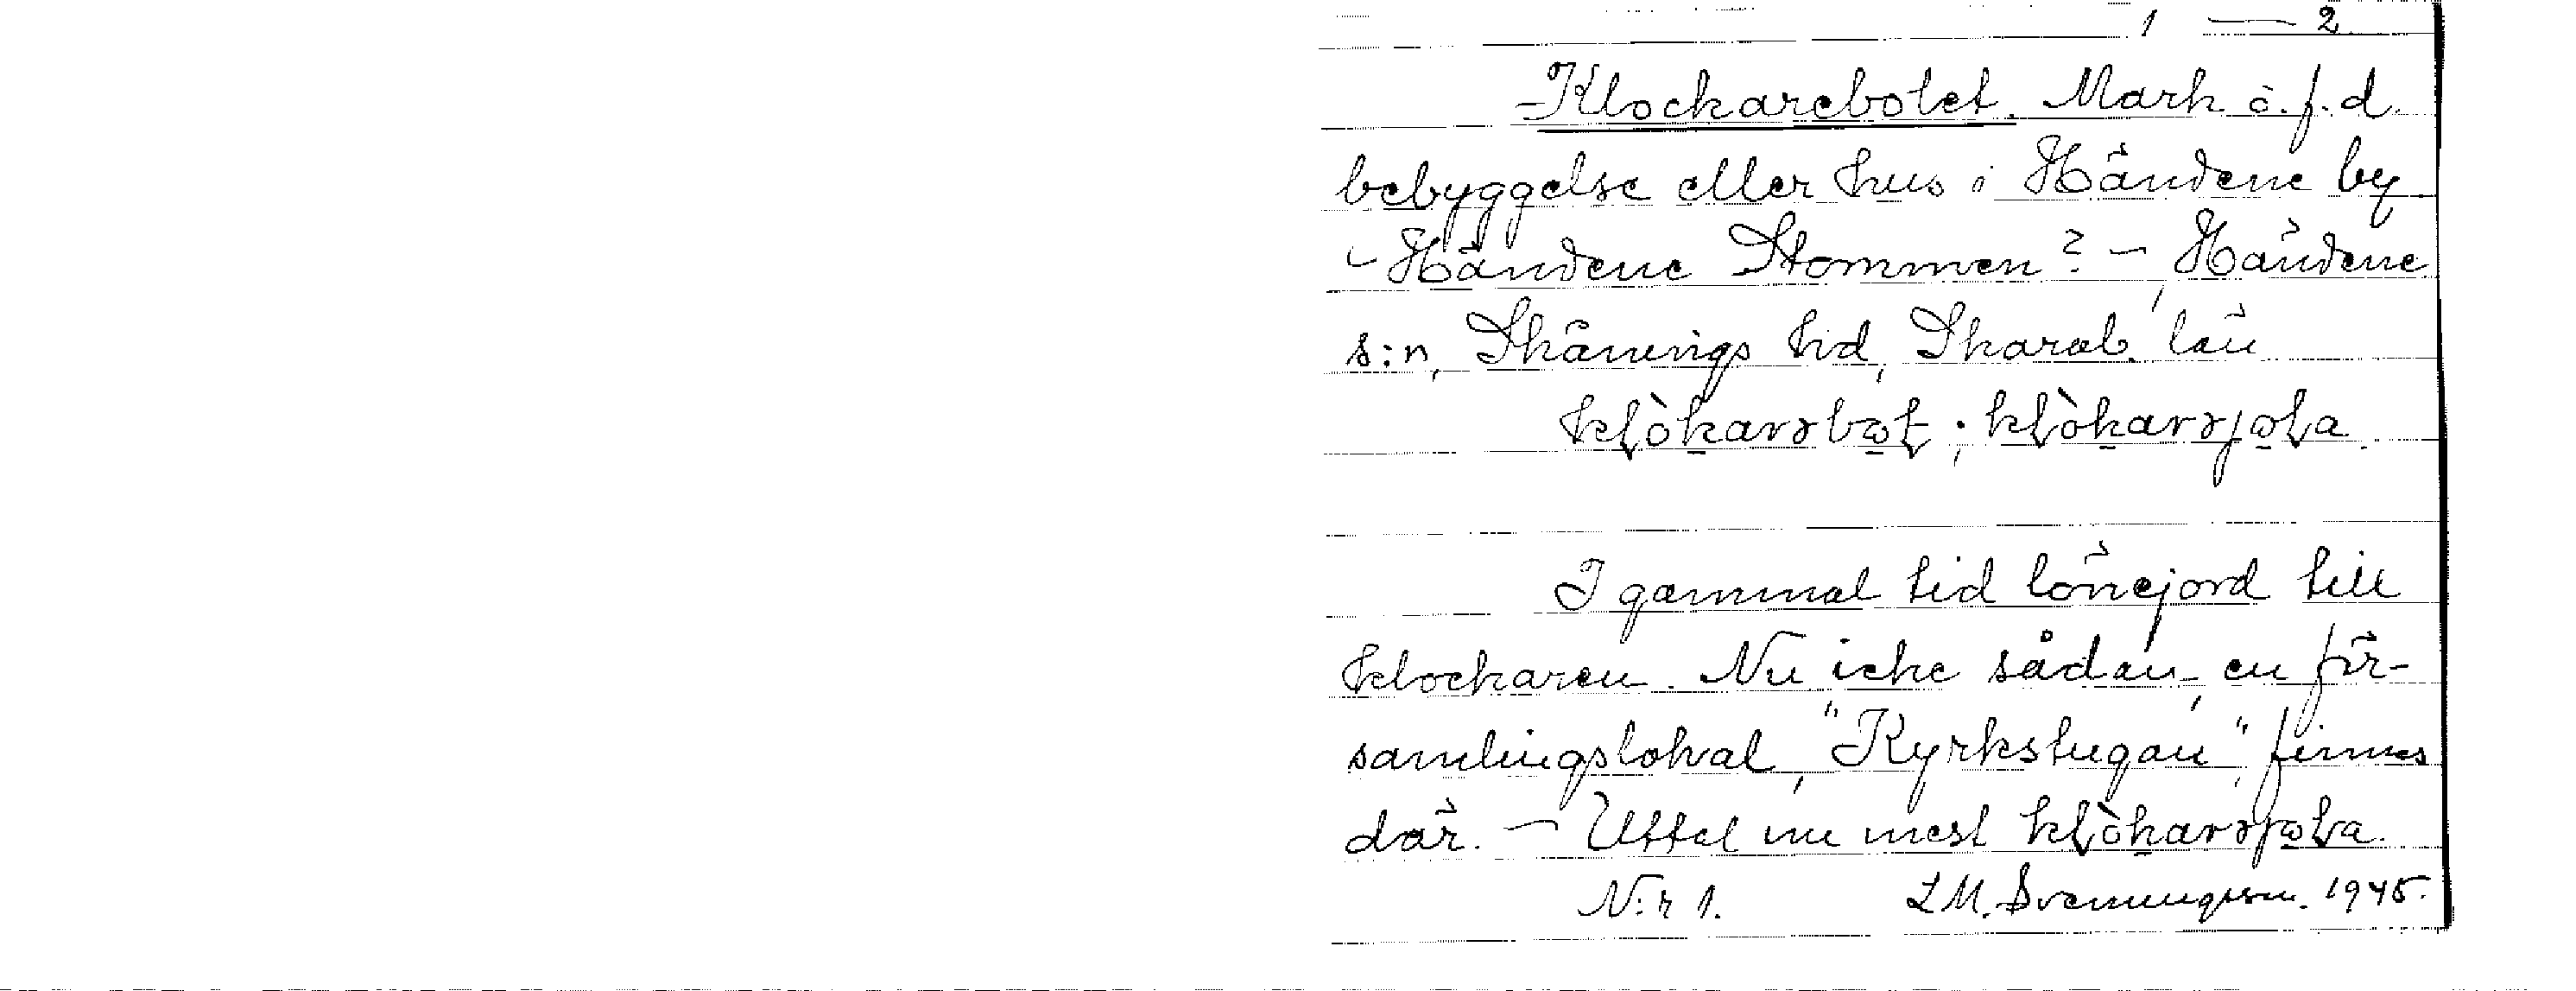 1 — 2
Klockarebolet. Mark o. f. d.
bebyggelse eller hus i Händene by
- Händene Stommen? - Händene
s:n, Skånings hd, Skarab. län
I gammal tid lönejord till
klockaren. Nu icke sådan, en för-
samlingslokal, "Kyrkstugan", finnes
där. - Uttal nu mest
N:r 1. L M. Svenungsson. 1945.